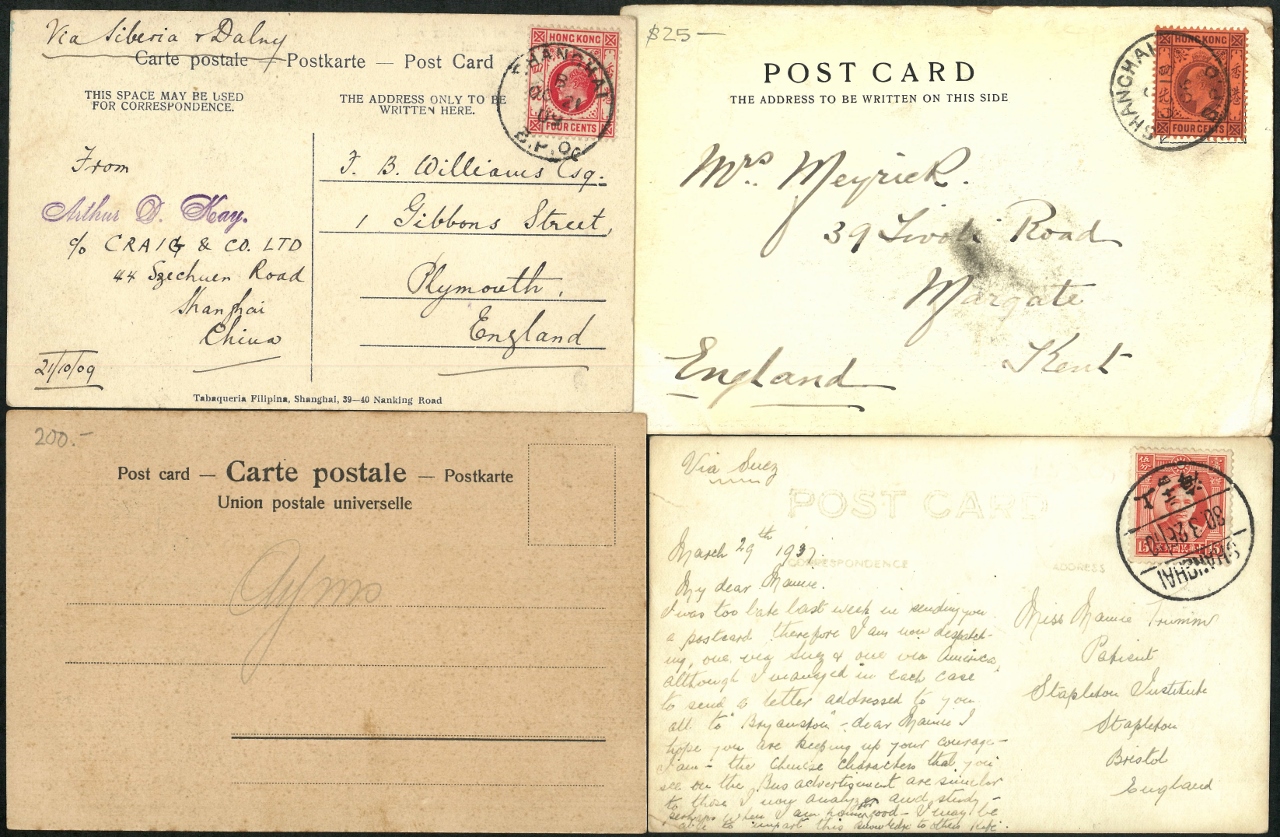 Via Siberia & Dalny
Carte postale — Postkarte — Post Card
THIS SPACE MAY BE USED
FOR CORRESPONDENCE.
THE ADDRESS ONLY TO BE
WRITTEN HERE.
HONG KONG
FOUR CENTS
SHANGHAI
B
OC 21
09
B.P.O.
From
Arthur D. Kay.
c/o CRAIG & CO. LTD
44 Szechuen Road
Shanghai
China
21/10/09
F. B. Williams Esq.
1 Gibbons Street,
Plymouth,
England
Tabaqueria Filipina, Shanghai, 39—40 Nanking Road
$25—
POST CARD
THE ADDRESS TO BE WRITTEN ON THIS SIDE
HONG KONG
FOUR CENTS
SHANGHAI
Mrs. Meyrick.
39 Tivoli Road
Margate
Kent
England
200.—
Post card — Carte postale — Postkarte
Union postale universelle
Via Suez
POST CARD
CORRESPONDENCE
ADDRESS
SHANGHAI
30. 3. 26. 10
15
March 29th 1937.
My dear Mamie.
I was too late last week in sending you
a postcard therefore I am now despatch-
ing, one via Suez & one via America,
although I managed in each case
to send a letter addressed to you
all to "Bryanston" - dear Mamie I
hope you are keeping up your courage -
I am - the Chinese characters that you
see on the Bus advertisement are similar
to those I now analyze and study -
perhaps when I am good - I may be
able to impart this knowledge to others
Miss Mamie Trimm
Patient
Stapleton Institute
Stapleton
Bristol
England